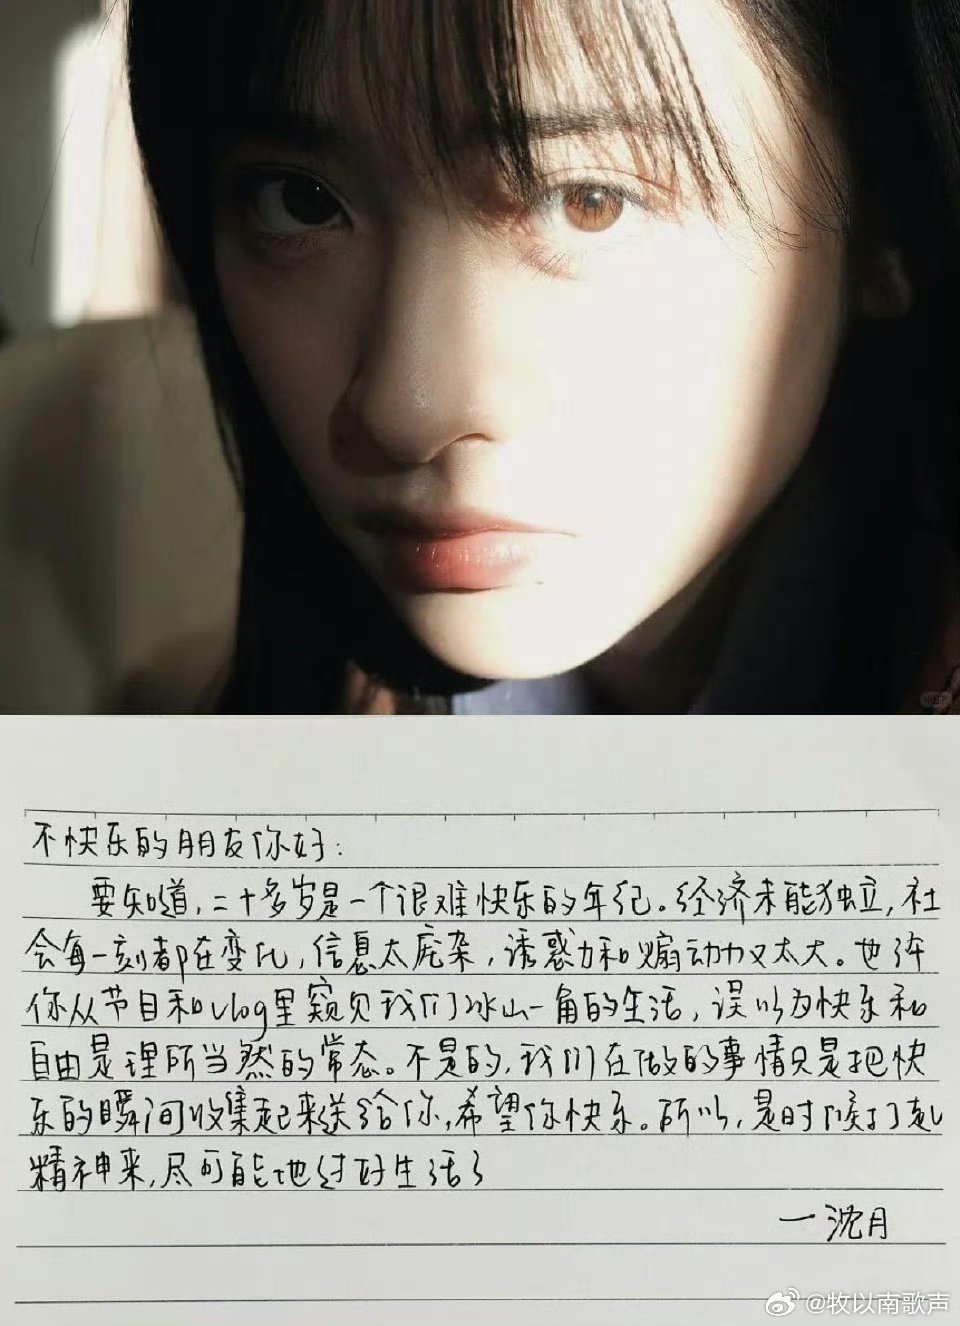 不快乐的朋友你好：
要知道，二十多岁是一个很难快乐的年纪。经济未能独立，社
会每一刻都在变化，信息太庞杂，诱惑力和煽动力又太大。也许
你从节目和vlog里窥见我们冰山一角的生活，误以为快乐和
自由是理所当然的常态。不是的，我们在做的事情只是把快
乐的瞬间收集起来送给你，希望你快乐。所以，是时候打起
精神来，尽可能地过好生活了
一沈月
@牧以南歌声